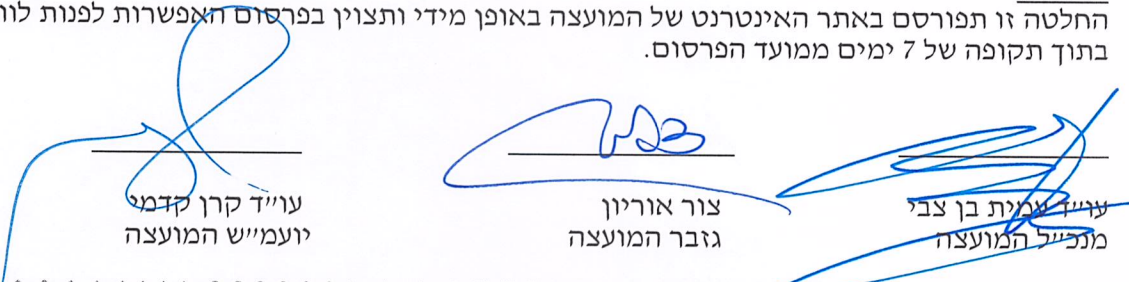 החלטה זו תפורסם באתר האינטרנט של המועצה באופן מידי ותצוין בפרסום האפשרות לפנות
בתוך תקופה של 7 ימים ממועד הפרסום.
עו״ד עמית בן צבי
מנכ״ל המועצה
צור אוריון
גזבר המועצה
עו״ד קרן קדמי
יועמ״ש המועצה